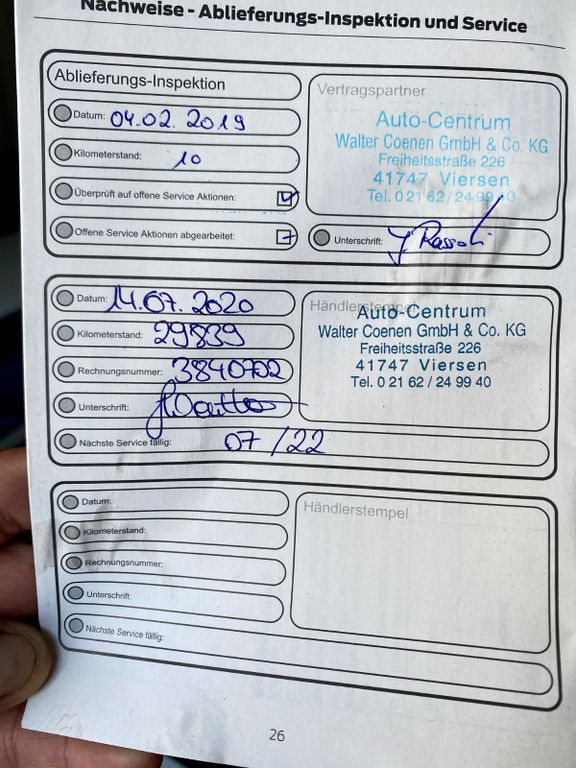 Nachweise - Ablieferungs-Inspektion und Service
Ablieferungs-Inspektion
Datum: 04.02.2019
Kilometerstand: 10
Überprüft auf offene Service Aktionen:
Offene Service Aktionen abgearbeitet:
Vertragspartner
Auto-Centrum
Walter Coenen GmbH & Co. KG
Freiheitsstraße 226
41747 Viersen
Tel. 0 21 62 / 24 99 40
Unterschrift:
Datum: 14.07.2020
Kilometerstand: 29839
Rechnungsnummer: 3840702
Unterschrift:
Nächste Service fällig: 07/22
Händlerstempel
Auto-Centrum
Walter Coenen GmbH & Co. KG
Freiheitsstraße 226
41747 Viersen
Tel. 0 21 62 / 24 99 40
Datum:
Kilometerstand:
Rechnungsnummer:
Unterschrift:
Nächste Service fällig:
Händlerstempel
26